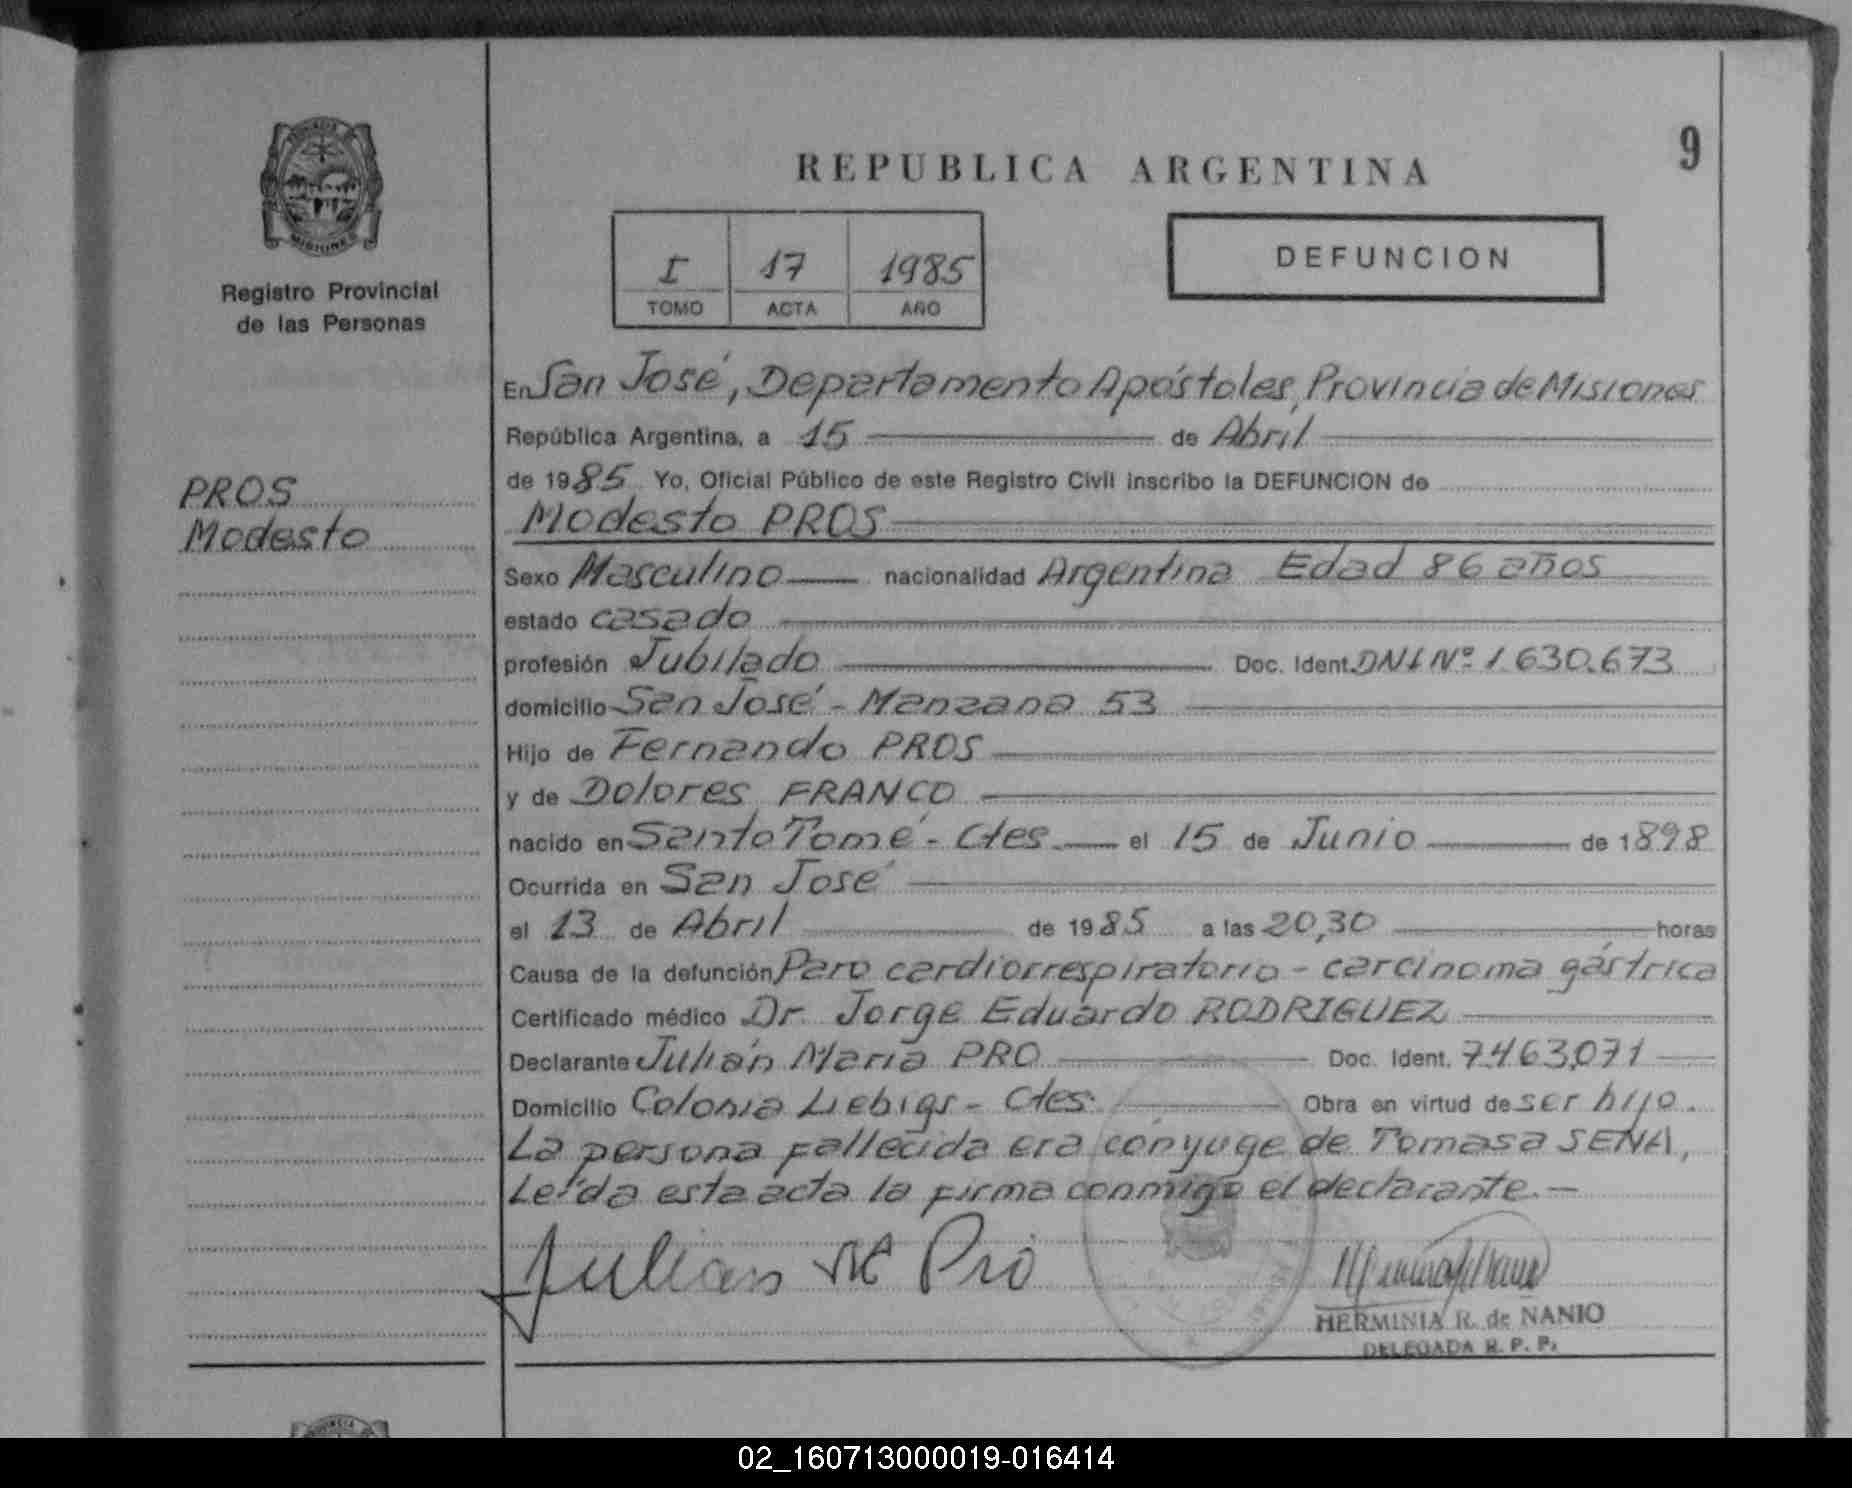 PROVINCIA
MISIONES
Registro Provincial
de las Personas
PROS
Modesto
9
REPUBLICA ARGENTINA
I 17 1985
TOMO ACTA AÑO
DEFUNCION
En San José, Departamento Apóstoles, Provincia de Misiones
República Argentina, a 15 de Abril
de 1985 Yo, Oficial Público de este Registro Civil inscribo la DEFUNCION de
Modesto PROS
Sexo Masculino nacionalidad Argentina Edad 86 años
estado casado
profesión Jubilado Doc. Ident. DNI Nº 1.630.673
domicilio San José - Manzana 53
Hijo de Fernando PROS
y de Dolores FRANCO
nacido en Santo Tomé - Ctes. el 15 de Junio de 1898
Ocurrida en San José
el 13 de Abril de 1985 a las 20,30 horas
Causa de la defunción Paro cardiorrespiratorio - carcinoma gástrica
Certificado médico Dr. Jorge Eduardo RODRIGUEZ
Declarante Julián María PRO Doc. Ident. 7.463,071
Domicilio Colonia Liebigs - Ctes. Obra en virtud de ser hijo.
La persona fallecida era cónyuge de Tomasa SENA,
Leída esta acta la firma conmigo el declarante.—
Julian M Pro
HERMINIA R. de ÑANIO
DELEGADA R. P. P.
PROVINCIA
02_160713000019-016414